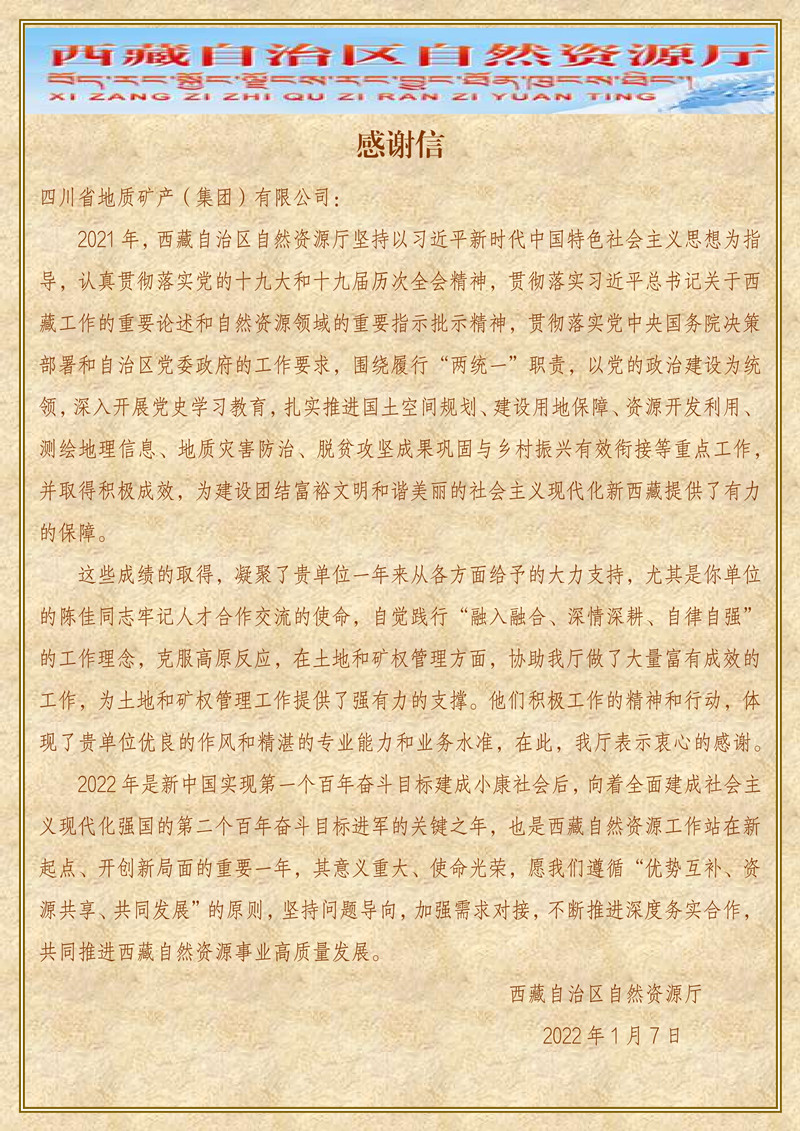 西藏自治区自然资源厅
XI ZANG ZI ZHI QU ZI RAN ZI YUAN TING
感谢信
四川省地质矿产（集团）有限公司：
2021年，西藏自治区自然资源厅坚持以习近平新时代中国特色社会主义思想为指
导，认真贯彻落实党的十九大和十九届历次全会精神，贯彻落实习近平总书记关于西
藏工作的重要论述和自然资源领域的重要指示批示精神，贯彻落实党中央国务院决策
部署和自治区党委政府的工作要求，围绕履行“两统一”职责，以党的政治建设为统
领，深入开展党史学习教育，扎实推进国土空间规划、建设用地保障、资源开发利用、
测绘地理信息、地质灾害防治、脱贫攻坚成果巩固与乡村振兴有效衔接等重点工作，
并取得积极成效，为建设团结富裕文明和谐美丽的社会主义现代化新西藏提供了有力
的保障。
这些成绩的取得，凝聚了贵单位一年来从各方面给予的大力支持，尤其是你单位
的陈佳同志牢记人才合作交流的使命，自觉践行“融入融合、深情深耕、自律自强”
的工作理念，克服高原反应，在土地和矿权管理方面，协助我厅做了大量富有成效的
工作，为土地和矿权管理工作提供了强有力的支撑。他们积极工作的精神和行动，体
现了贵单位优良的作风和精湛的专业能力和业务水准，在此，我厅表示衷心的感谢。
2022年是新中国实现第一个百年奋斗目标建成小康社会后，向着全面建成社会主
义现代化强国的第二个百年奋斗目标进军的关键之年，也是西藏自然资源工作站在新
起点、开创新局面的重要一年，其意义重大、使命光荣，愿我们遵循“优势互补、资
源共享、共同发展”的原则，坚持问题导向，加强需求对接，不断推进深度务实合作，
共同推进西藏自然资源事业高质量发展。
西藏自治区自然资源厅
2022年1月7日